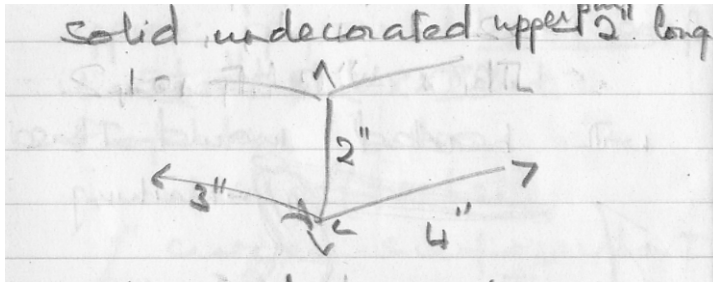 solid undecorated upper part 2" long
2"
3"
4"